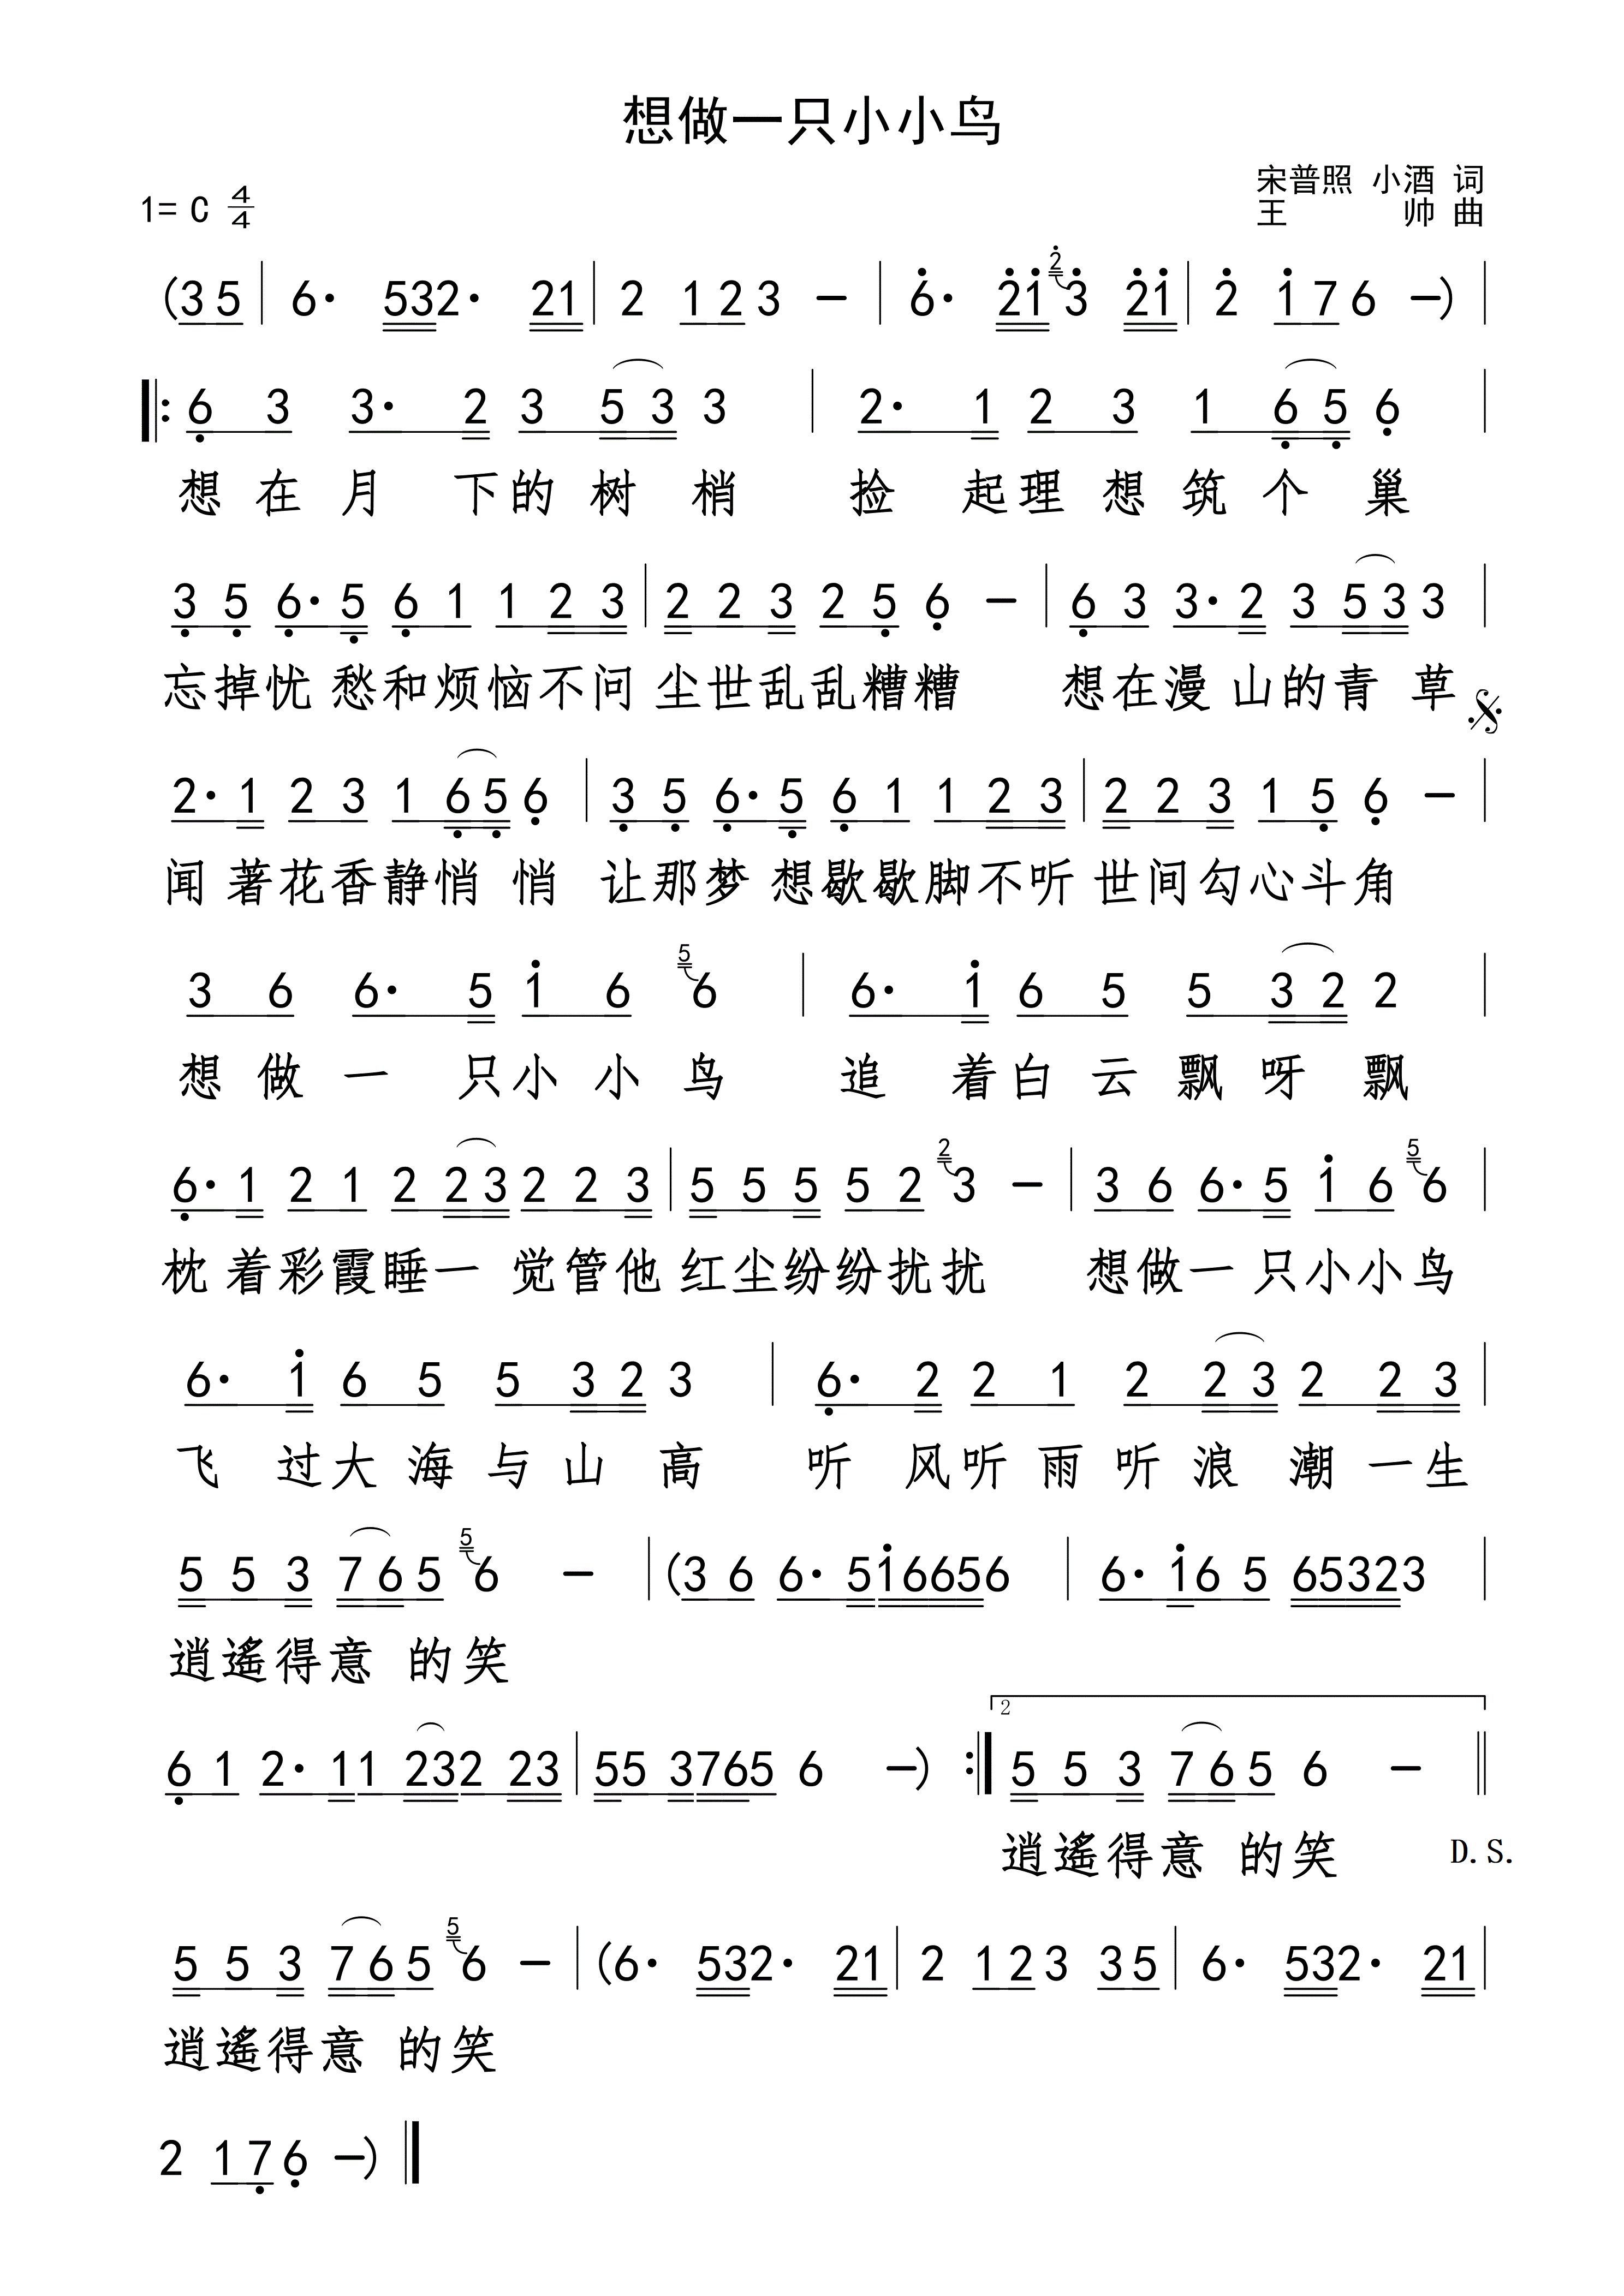 想做一只小小鸟
宋普照 小酒 词
1= C 4/4
王 帅 曲
(3 5 | 6· 532· 21 | 2 1 2 3 – | 6̇· 2̇1̇ 2̇ 3̇ 2̇1̇ | 2̇ 1̇ 7 6 –) |
‖: 6̣ 3 3· 2 3 5 3 3 | 2· 1 2 3 1 6̣ 5̣ 6̣ |
想 在 月 下 的 树 梢 捡 起 理 想 筑 个 巢
3̣ 5̣ 6̣· 5̣ 6̣ 1 1 2 3 | 2 2 3 2 5̣ 6̣ – | 6̣ 3 3· 2 3 5 3 3 |
忘掉忧 愁和烦恼不问 尘世乱乱糟糟 想在漫 山的青 草
𝄋
2· 1 2 3 1 6̣ 5̣ 6̣ | 3̣ 5̣ 6̣· 5̣ 6̣ 1 1 2 3 | 2 2 3 1 5̣ 6̣ – |
闻 著花香静悄 悄 让那梦 想歇歇脚不听 世间勾心斗角
3 6 6· 5 1̇ 6 5 6 | 6· 1̇ 6 5 5 3 2 2 |
想 做 一 只小 小 鸟 追 着白 云 飘 呀 飘
6̣· 1 2 1 2 2 3 2 2 3 | 5 5 5 5 2 2 3 – | 3 6 6· 5 1̇ 6 5 6 |
枕 着彩霞睡一 觉管他 红尘纷纷扰扰 想做一 只小小鸟
6· 1̇ 6 5 5 3 2 3 | 6̣· 2 2 1 2 2 3 2 2 3 |
飞 过大 海 与 山 高 听 风听 雨 听 浪 潮 一生
5 5 3 7 6 5 5 6 – | (3 6 6· 51̇6656 | 6· 1̇6 5 65323 |
逍遥得意 的笑
6̣ 1 2· 11 232 23 | 55 3765 6 –) :‖ 2 5 5 3 7 6 5 6 – ‖
逍遥得意 的笑 D.S.
5 5 3 7 6 5 5 6 – | (6· 532· 21 | 2 1 2 3 3 5 | 6· 532· 21 |
逍遥得意 的笑
2 1 7̣ 6̣ –) ‖